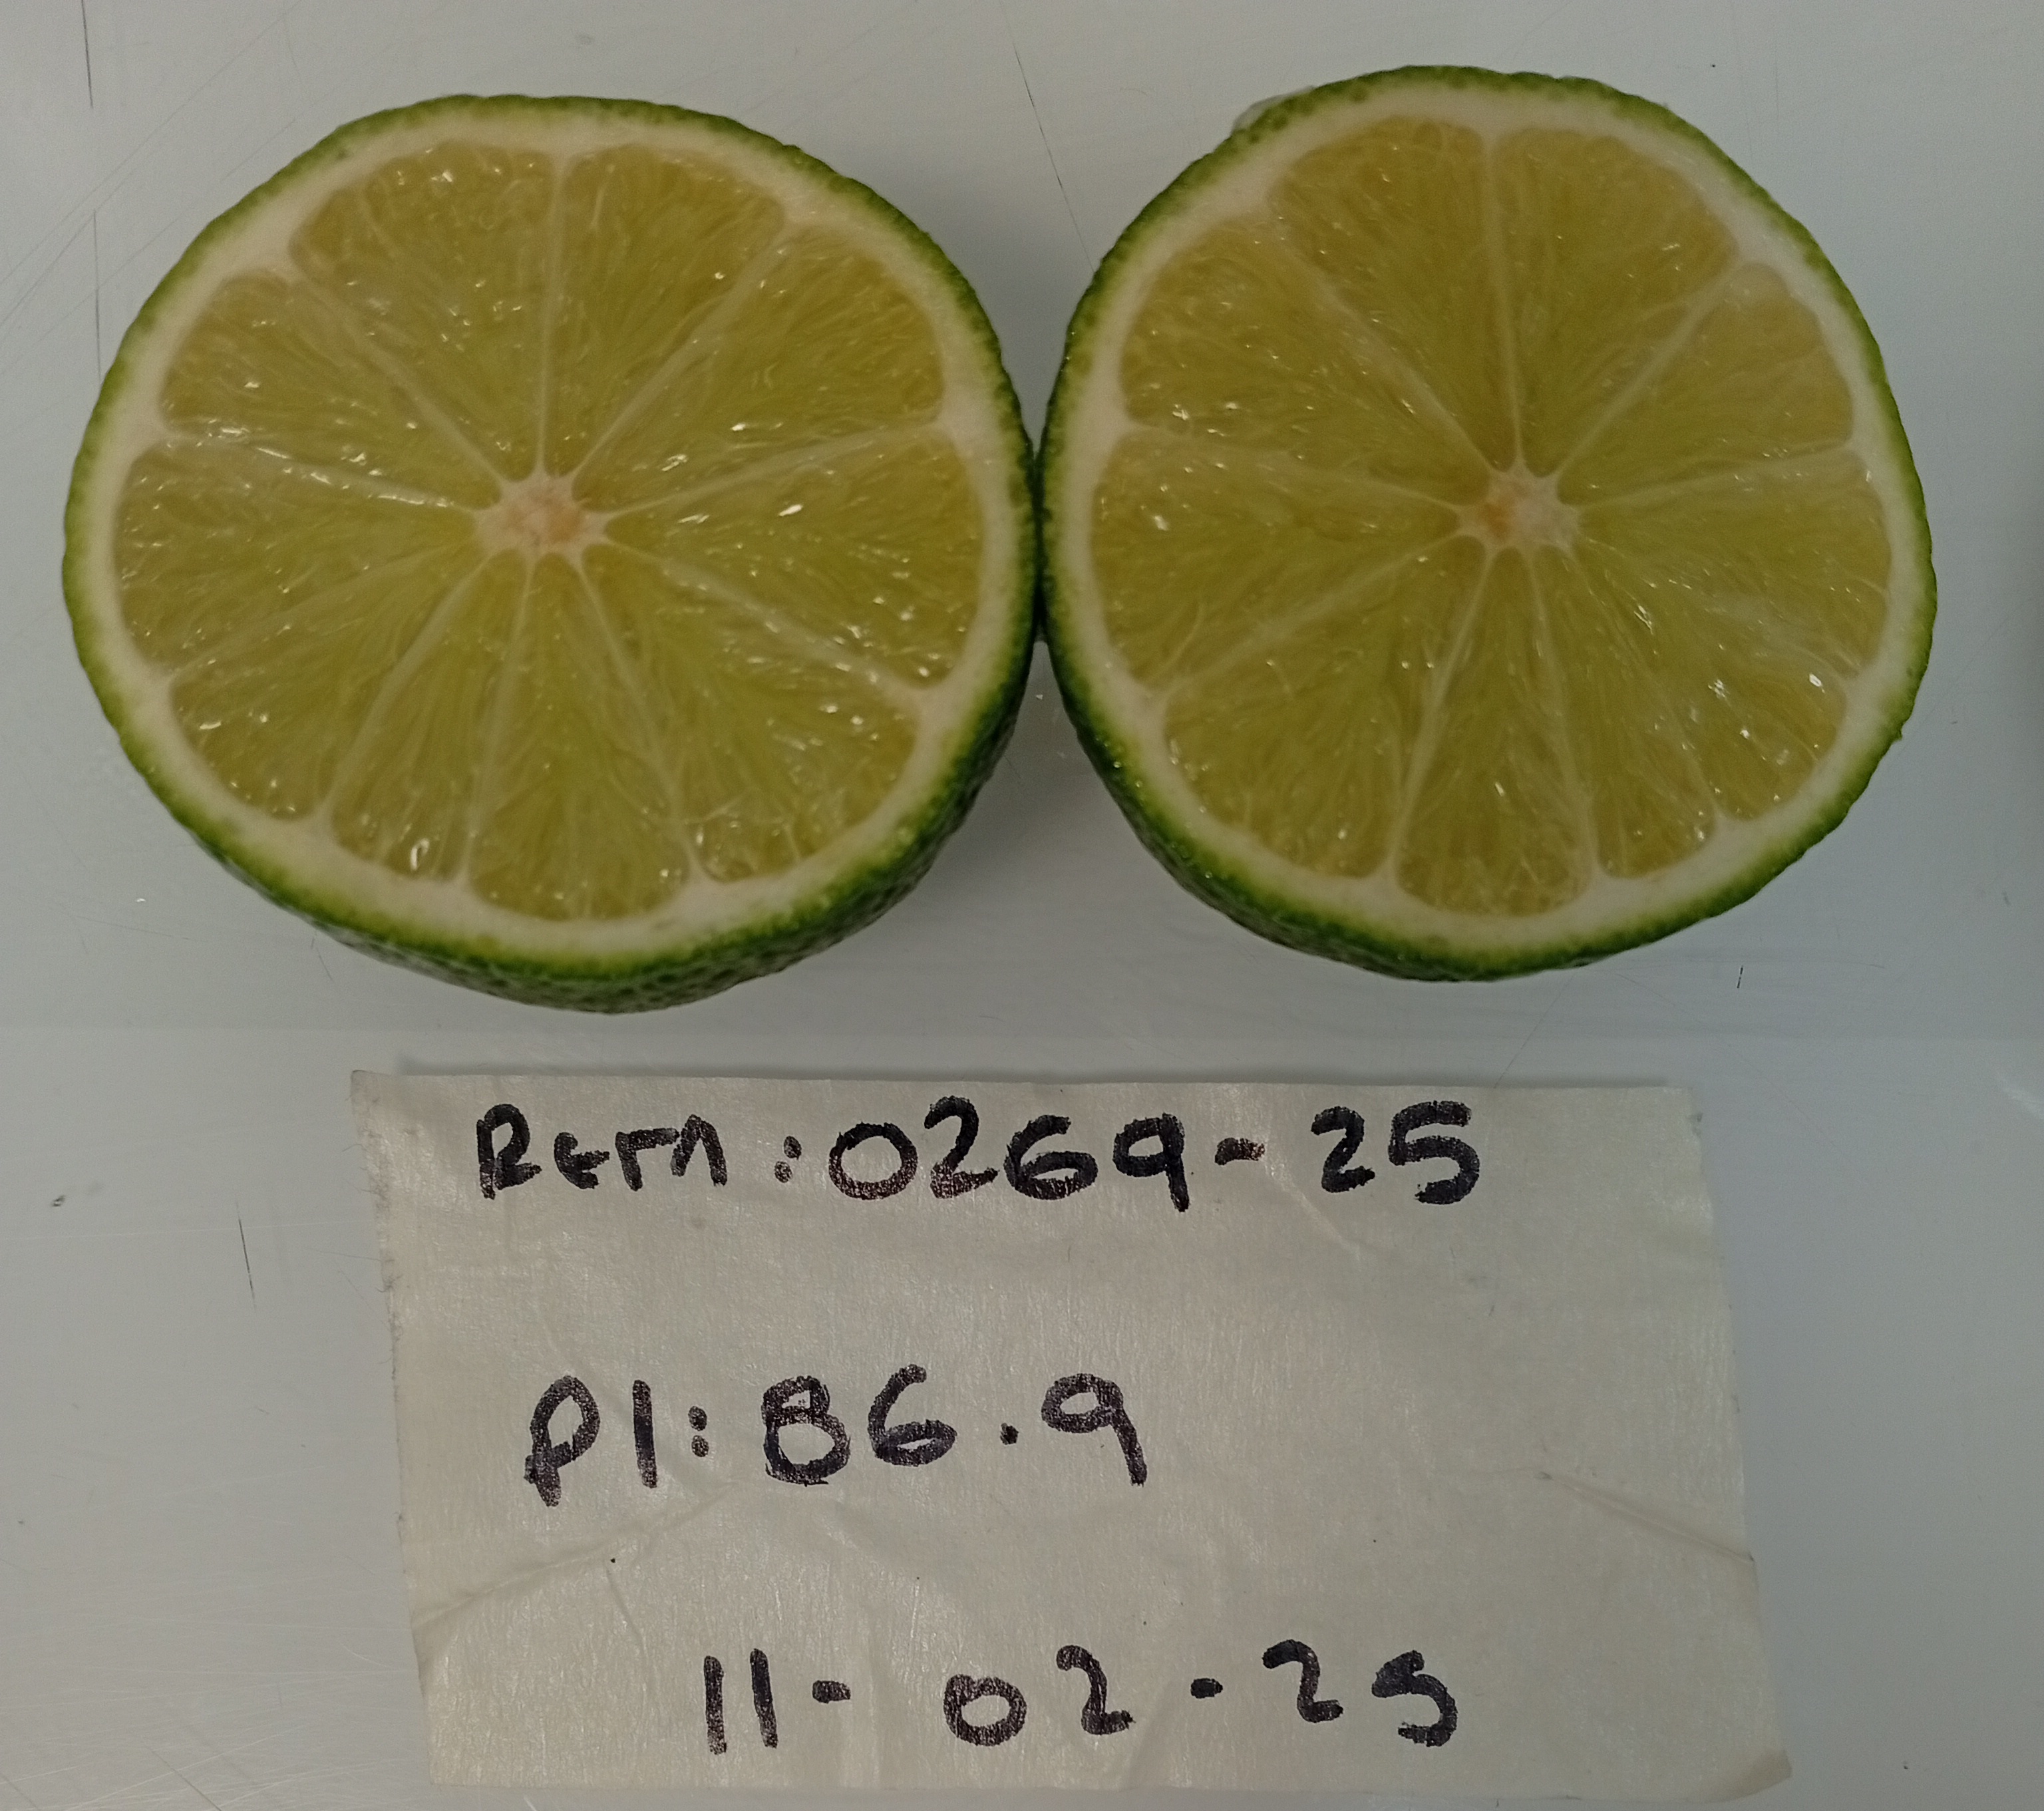 RETA: 0269-25
PI: 86.9
11-02-25